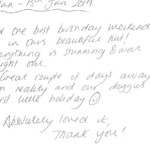 Jan 20th
one best birthday weekend
in this beautiful hut!
everything is stunning & was
right one.
Great couple of days away
reality and our doggies
best were holiday ☺
Absolutely loved it,
Thank you!